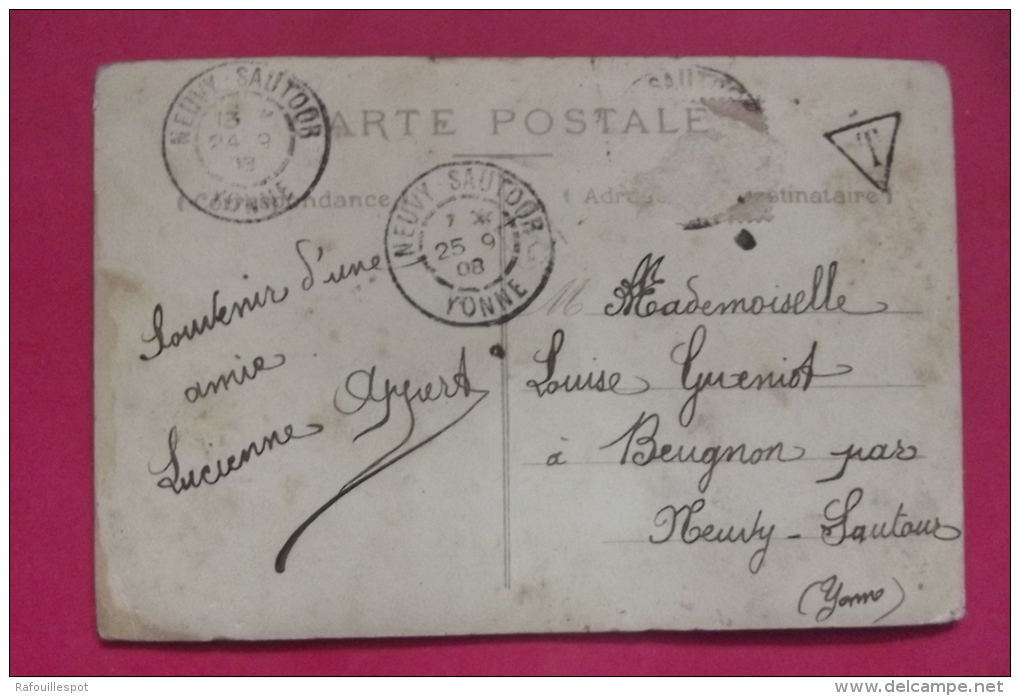 NEUVY-SAUTOUR
24 9
YONNE
CARTE POSTALE
SAUTOUR
T
Correspondance
NEUVY-SAUTOUR
25 9
08
YONNE
Souvenir d'une
amie
Lucienne Appert
M Mademoiselle
Louise Gueniot
à Beugnon par
Neuvy-Sautour
(Yonne)
Rafouillespot
www.delcampe.net